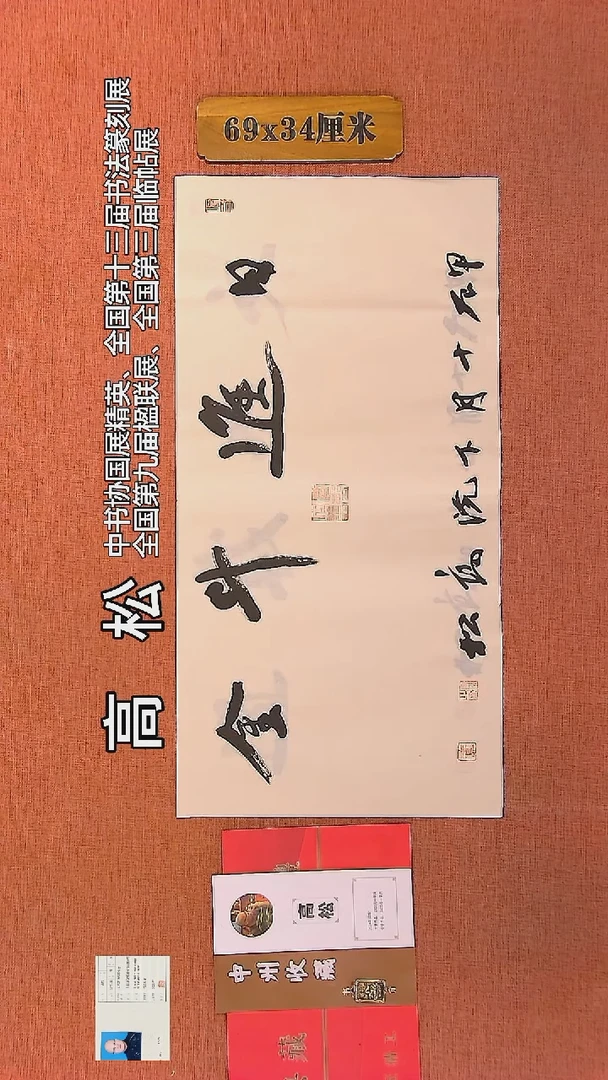 高 松
中书协国展精英、全国第十三届书法篆刻展
全国第九届楹联展、全国第三届临帖展
69x34厘米
日進斗金
甲辰十月下浣高松
高松
中州收藏
藏